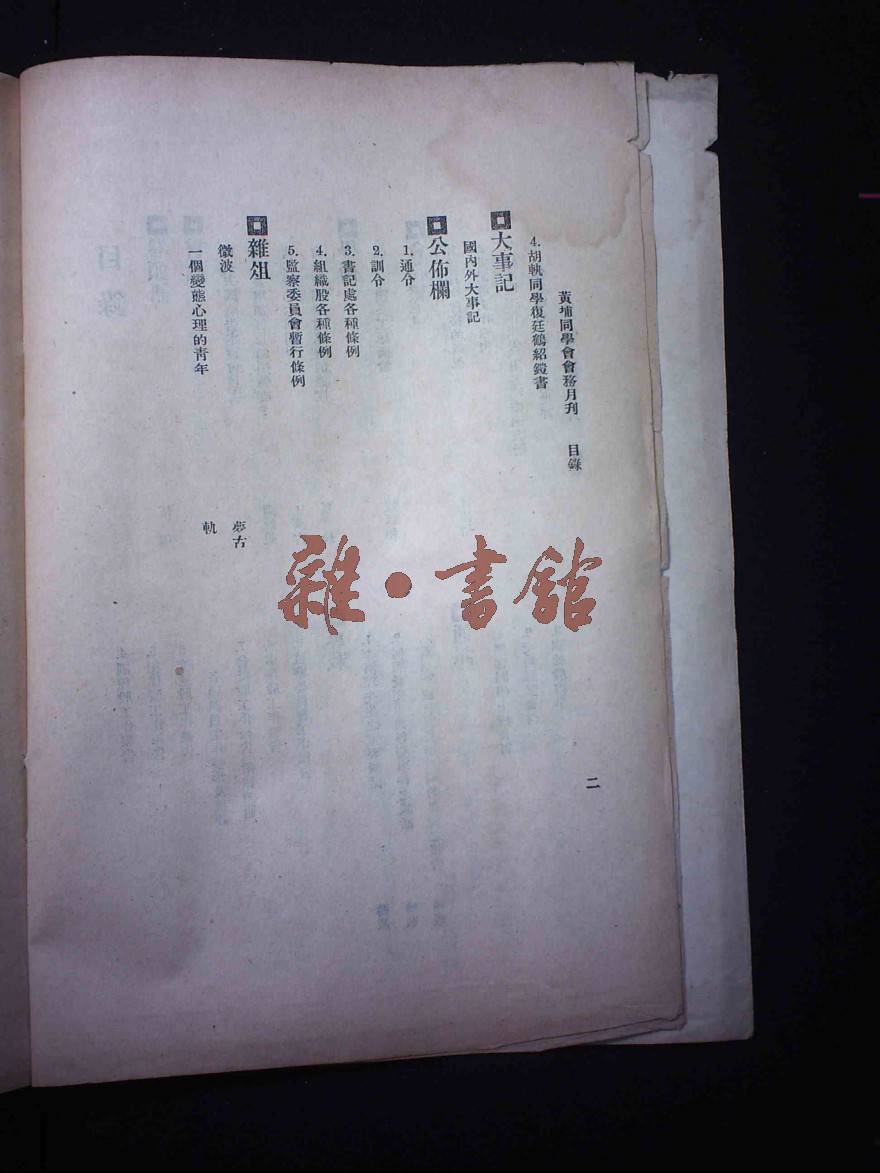 黃埔同學會會務月刊 目錄
4.胡軌同學復廷鶴紹鎧書
大事記
國內外大事記
公佈欄
1.通令
2.訓令
3.書記處各種條例
4.組織股各種條例
5.監察委員會暫行條例
雜俎
微波 夢古
一個變態心理的青年 軌
二
雜·書館